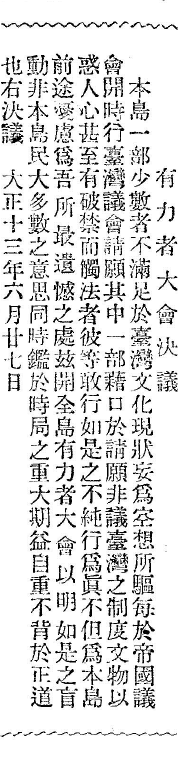 有力者大會決議
本島一部少數者不滿足於臺灣文化現狀妄爲空想所驅每於帝國議
會開時行臺灣議會請願其中一部藉口於請願非議臺灣之制度文物以
惑人心甚至有破禁而觸法者彼等敢行如是之不純行爲眞不但爲本島
前途憂慮爲吾所最遺憾之處玆開全島有力者大會以明如是之盲
動非本島民大多數之意思同時鑑於時局之重大期益自重不背於正道
也右決議　大正十三年六月廿七日